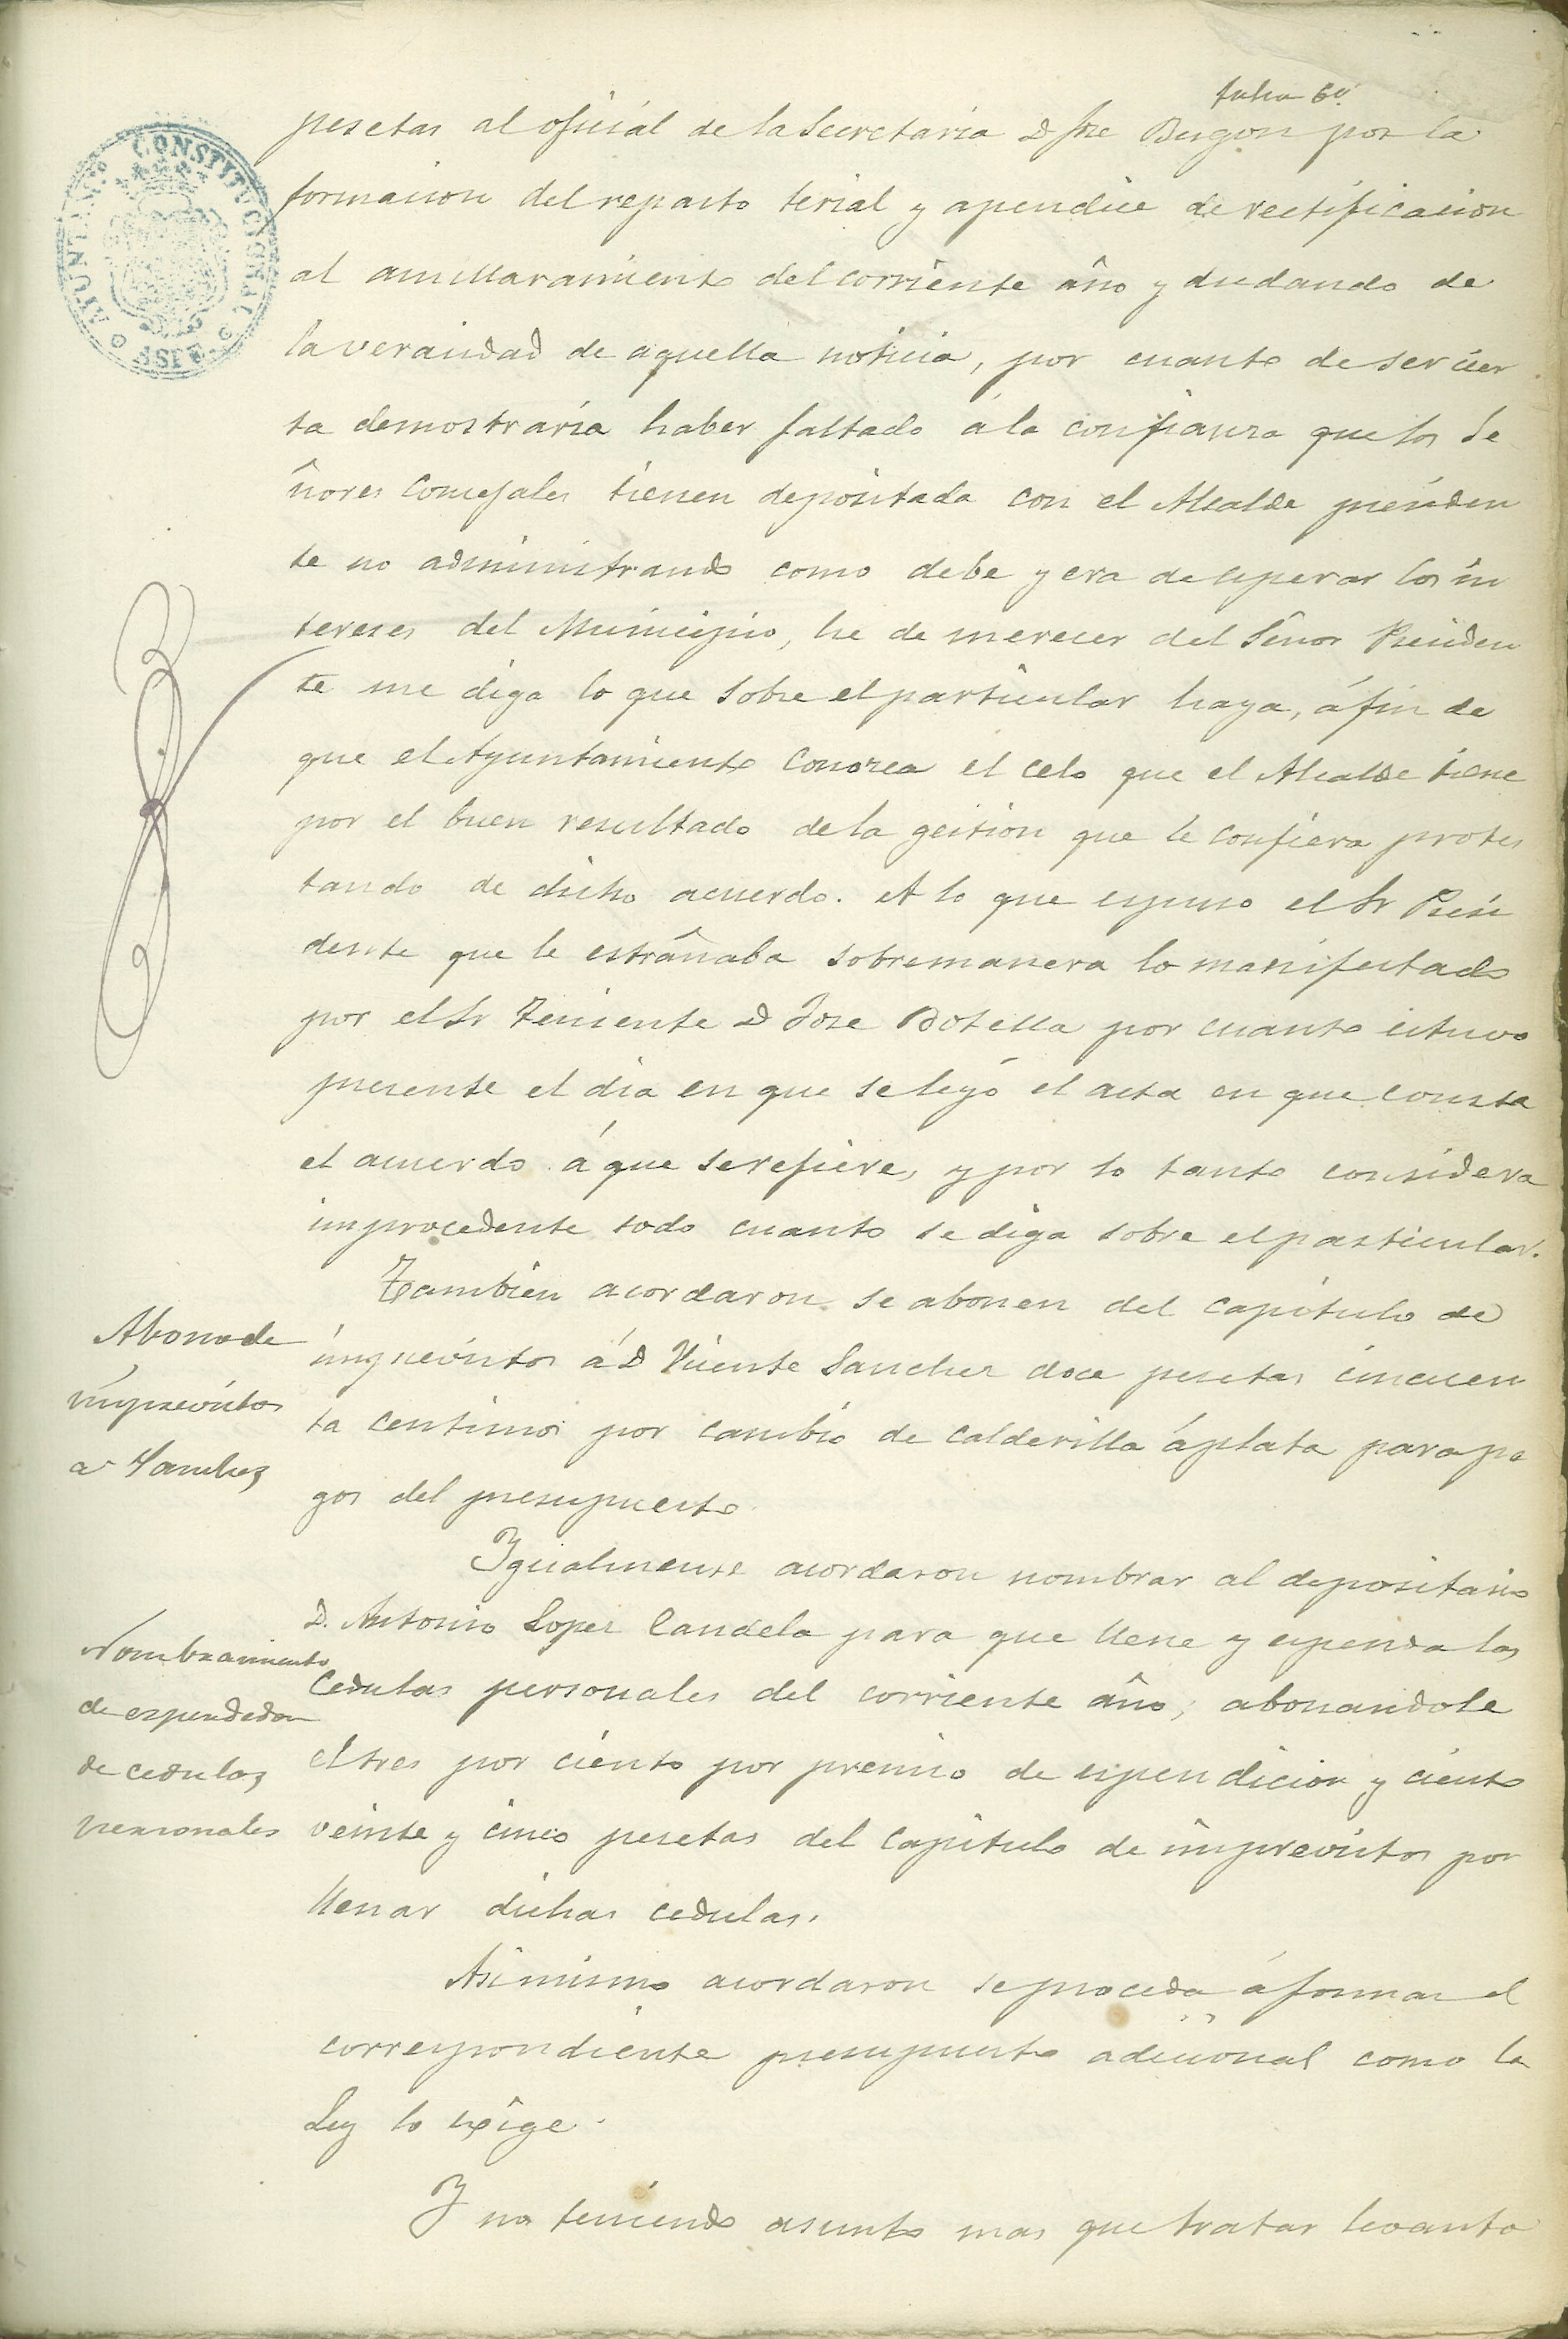 pesetas al oficial de la Secretaria D Jose Burgos por la
formacion del reparto terial y apendice de rectificacion
al amillaramiento del corriente año y dudando de
la veracidad de aquella noticia, por cuanto de ser cier
ta demostraria haber faltado á la confianza que los Se
ñores Concejales tienen depositada con el Alcalde presiden
te no administrando como debe y era de esperar los in
tereses del Municipio, he de merecer del Señor Presiden
te me diga lo que sobre el particular haya, á fin de
que el Ayuntamiento conozca el celo que el Alcalde tiene
por el buen resultado de la gestion que le confiera protes
tando de dicho acuerdo. A lo que espuso el Sr Presi
dente que le estrañaba sobremanera lo manifestado
por el Sr Teniente D Jose Botella por cuanto estuvo
presente el dia en que se leyó el acta en que consta
el acuerdo á que se refiere, y por lo tanto considera
improcedente todo cuanto se diga sobre el particular.
Tambien acordaron se abonen del capitulo de
imprevistos á D Vicente Sanchez doce pesetas cincuen
ta centimos por cambio de calderilla á plata para pa
gos del presupuesto
Abono de
imprevistos
a Sanchez
Igualmente acordaron nombrar al depositario
D. Antonio Lopez Candela para que llene y espenda las
cedulas personales del corriente año, abonandole
el tres por ciento por premio de espendicion y ciento
veinte y cinco pesetas del capitulo de imprevistos por
llenar dichas cedulas.
Nombramiento
de espendedor
de cedulas
personales
Asimismo acordaron se proceda á formar el
correspondiente presupuesto adicional como la
Ley lo exige.
Y no teniendo asunto mas que tratar levanto
AYUNTAMIENTO CONSTITUCIONAL